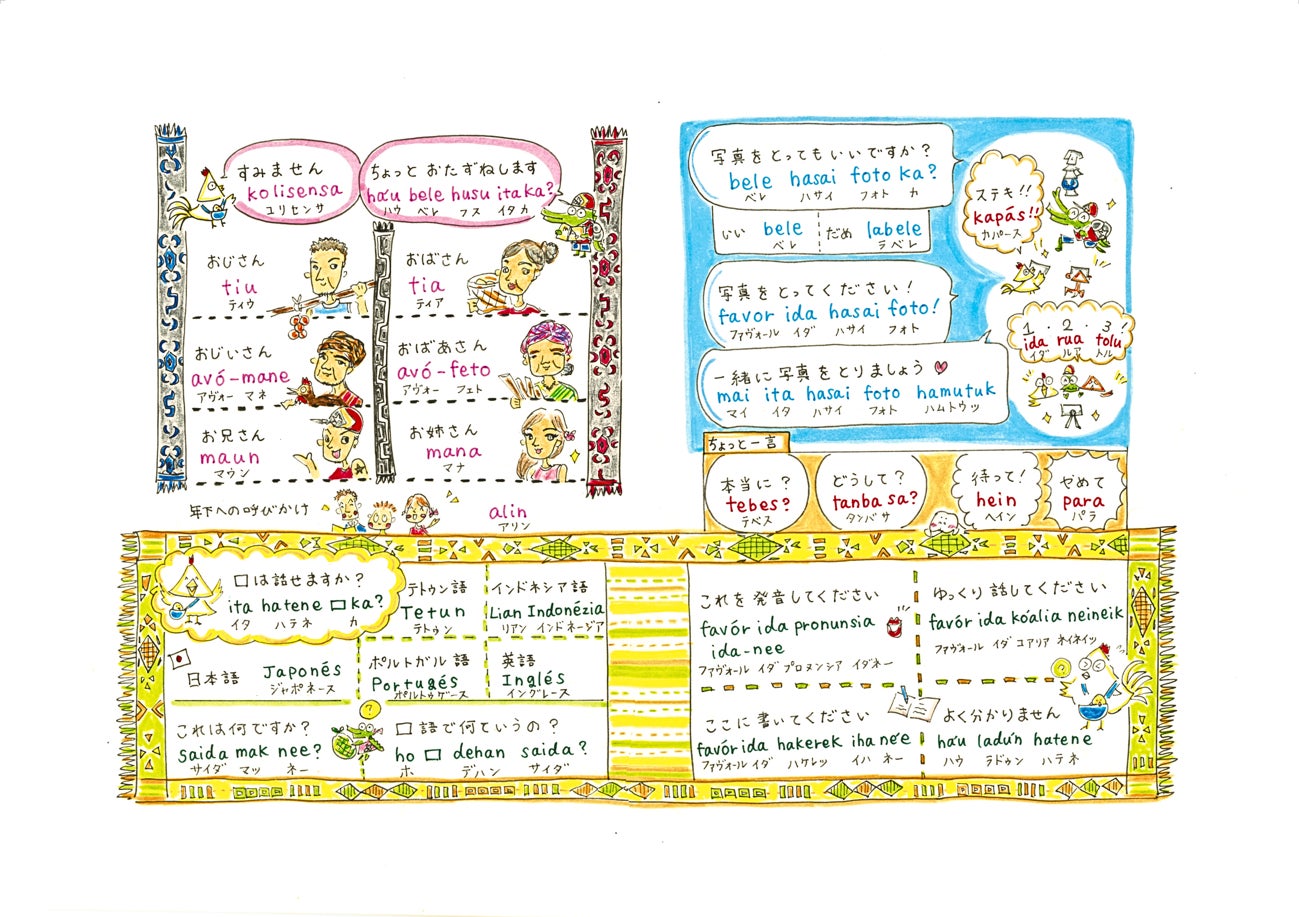 すみません
kolisensa
ユリセンサ
ちょっと おたずねします
ha'u bele husu ita ka?
ハウ ベレ フス イタ カ
おじさん
tiu
ティウ
おばさん
tia
ティア
おじいさん
avó-mane
アヴォー マネ
おばあさん
avó-feto
アヴォー フェト
お兄さん
maun
マウン
お姉さん
mana
マナ
年下への呼びかけ
alin
アリン
写真をとってもいいですか?
bele hasai foto ka?
ベレ ハサイ フォト カ
いい bele
ベレ
だめ labele
ラベレ
ステキ!!
kapás!!
カパース
写真をとってください!
favor ida hasai foto!
ファヴォール イダ ハサイ フォト
1・2・3!
ida rua tolu
イダ ルア トル
一緒に写真をとりましょう
mai ita hasai foto hamutuk
マイ イタ ハサイ フォト ハムトゥッ
ちょっと一言
本当に?
tebes?
テベス
どうして?
tanba sa?
タンバサ
待って!
hein
ヘイン
やめて
para
パラ
□は話せますか?
ita hatene □ ka?
イタ ハテネ カ
テトゥン語
Tetun
テトゥン
インドネシア語
Lian Indonézia
リアン インドネージア
日本語 Japonés
ジャポネース
ポルトガル語
Portugés
ポルトゥゲース
英語
Inglés
イングレース
これは何ですか?
saida mak nee?
サイダ マッ ネー
□語で何ていうの?
ho □ dehan saida?
ホ デハン サイダ
これを発音してください
favór ida pronunsia
ida-nee
ファヴォール イダ プロヌンシア イダネー
ゆっくり話してください
favór ida koália neineik
ファヴォール イダ コアリア ネイネイッ
ここに書いてください
favór ida hakerek iha ne'e
ファヴォール イダ ハケレッ イハ ネー
よく分かりません
ha'u ladu'n hatene
ハウ ラドゥン ハテネ